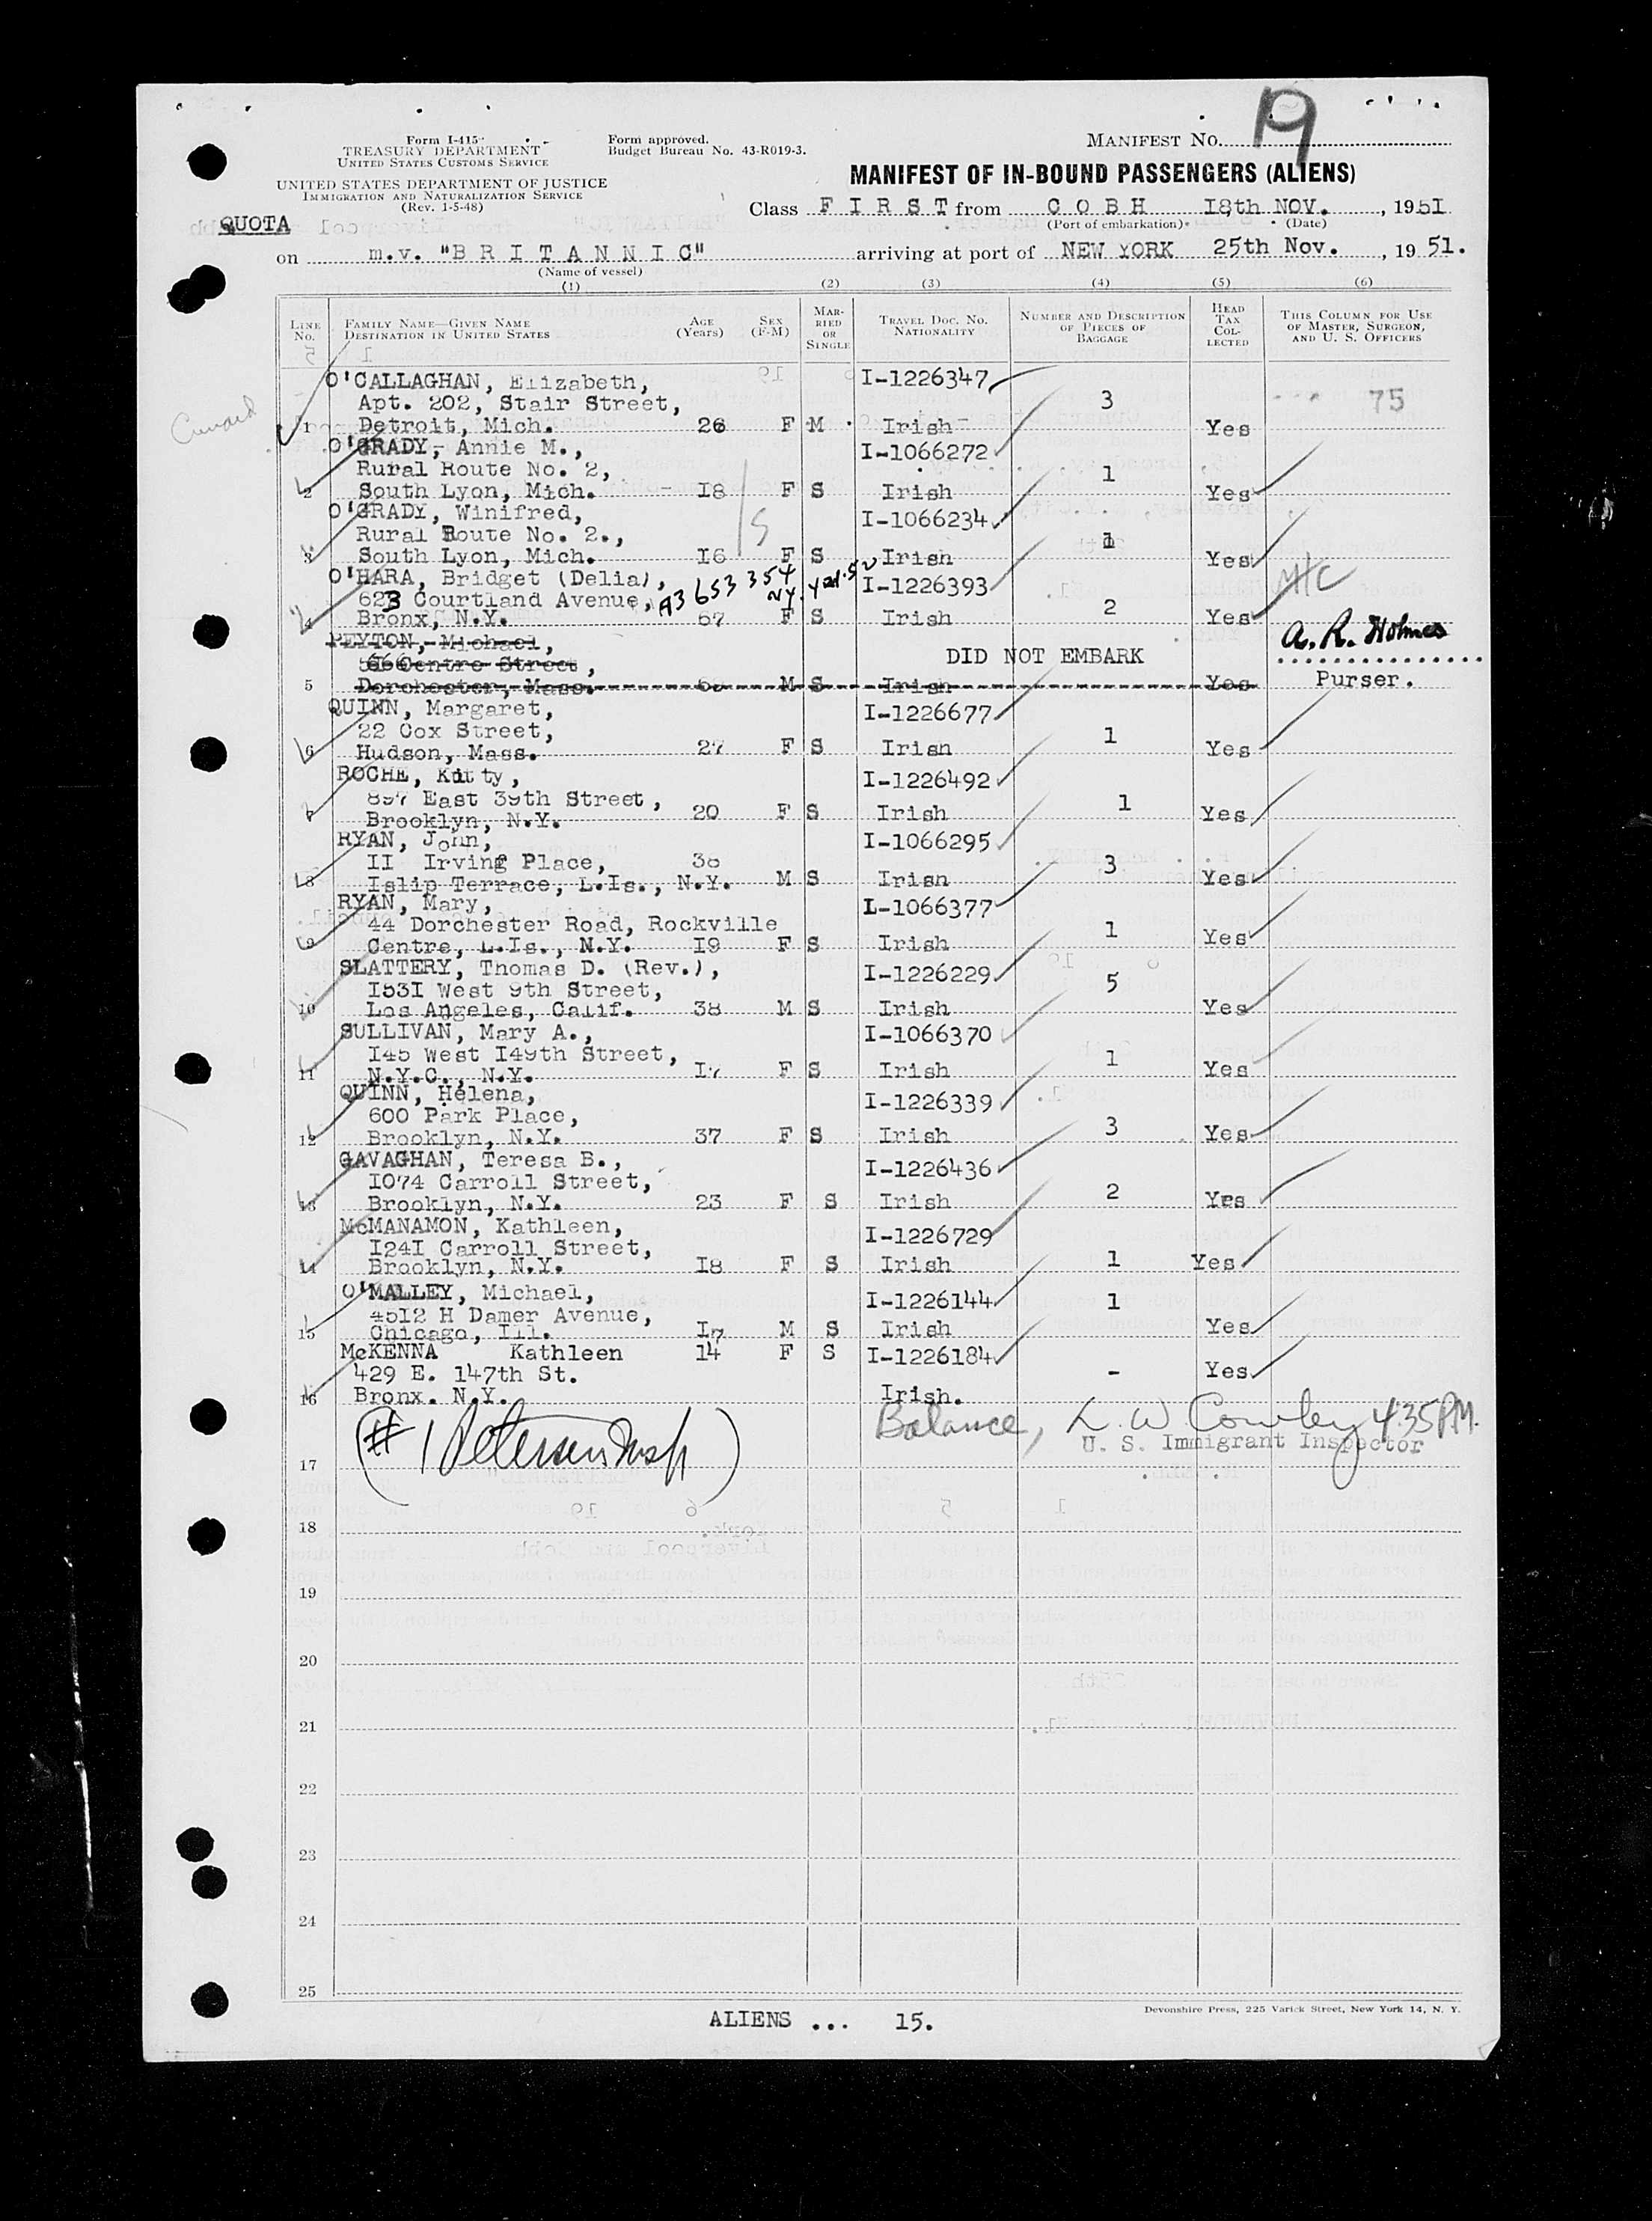 MANIFEST NO. 19
Form I-415
TREASURY DEPARTMENT
UNITED STATES CUSTOMS SERVICE
Form approved.
Budget Bureau No. 43-R019-3.
UNITED STATES DEPARTMENT OF JUSTICE
IMMIGRATION AND NATURALIZATION SERVICE
(Rev. 1-5-48)
MANIFEST OF IN-BOUND PASSENGERS (ALIENS)
QUOTA
Class F I R S T from C O B H 18th NOV. , 1951
(Port of embarkation) (Date)
on m.v. "B R I T A N N I C" arriving at port of NEW YORK 25th Nov. , 19 51.
(Name of vessel)
(1) (2) (3) (4) (5) (6)
LINE NO. FAMILY NAME—GIVEN NAME DESTINATION IN UNITED STATES AGE (Years) SEX (F-M) MARRIED OR SINGLE TRAVEL DOC. NO. NATIONALITY NUMBER AND DESCRIPTION OF PIECES OF BAGGAGE HEAD TAX COLLECTED THIS COLUMN FOR USE OF MASTER, SURGEON, AND U. S. OFFICERS
Cunard
O'CALLAGHAN, Elizabeth, I-1226347
Apt. 202, Stair Street, 3 75
1 Detroit, Mich. 26 F M Irish Yes
O'GRADY, Annie M., I-1066272
Rural Route No. 2, 1
2 South Lyon, Mich. I8 F S Irish Yes
O'GRADY, Winifred, I-1066234
Rural Route No. 2., 1
3 South Lyon, Mich. I6 F S Irish Yes
O'HARA, Bridget (Delia), A3 653 354 I-1226393
623 Courtland Avenue, 2
4 Bronx, N.Y. 67 F S Irish Yes
PEYTON, Michael,
Centre Street, DID NOT EMBARK A. R. Holmes
5 Dorchester, Mass. M S Irish Yes Purser.
QUINN, Margaret, I-1226677
22 Cox Street, 1
6 Hudson, Mass. 27 F S Irish Yes
ROCHE, Kitty, I-1226492
897 East 39th Street, 1
7 Brooklyn, N.Y. 20 F S Irish Yes
RYAN, John, I-1066295
II Irving Place, 38 3
8 Islip Terrace, L.Is., N.Y. M S Irish Yes
RYAN, Mary, I-1066377
44 Dorchester Road, Rockville 1
9 Centre, L.Is., N.Y. I9 F S Irish Yes
SLATTERY, Thomas D. (Rev.), I-1226229
I53I West 9th Street, 5
10 Los Angeles, Calif. 38 M S Irish Yes
SULLIVAN, Mary A., I-1066370
I45 West I49th Street, 1
11 N.Y.C., N.Y. I7 F S Irish Yes
QUINN, Helena, I-1226339
600 Park Place, 3
12 Brooklyn, N.Y. 37 F S Irish Yes
GAVAGHAN, Teresa B., I-1226436
I074 Carroll Street, 2
13 Brooklyn, N.Y. 23 F S Irish Yes
McMANAMON, Kathleen, I-1226729
I24I Carroll Street, 1
14 Brooklyn, N.Y. I8 F S Irish Yes
O'MALLEY, Michael, I-1226144
45I2 H Damer Avenue, 1
15 Chicago, Ill. I7 M S Irish Yes
McKENNA Kathleen 14 F S I-1226184
429 E. 147th St. - Yes
16 Bronx. N.Y. Irish.
Balance, L. W. Cowley 4:35 P.M.
U. S. Immigrant Inspector
17
18
19
20
21
22
23
24
25
Devonshire Press, 225 Varick Street, New York 14, N. Y.
ALIENS ... 15.